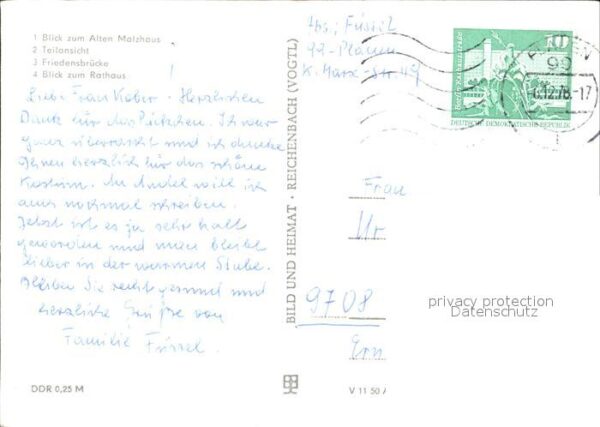 1 Blick zum Alten Malzhaus
2 Teilansicht
3 Friedensbrücke
4 Blick zum Rathaus
Liebe Frau Kober! Herzlichen
Dank für das Päckchen. Ich war
ganz überrascht und ich danke
Ihnen herzlich für das schöne
Kostüm. An will ich
auch nochmal schreiben.
Jetzt ist es ja sehr kalt
geworden und man bleibt
lieber in der warmen Stube.
Bleiben Sie recht gesund und
herzliche Grüße von
Familie Füssel.
DDR 0,25 M
BILD UND HEIMAT · REICHENBACH (VOGTL)
V 11 50
Abs.: Füssel
99 Plauen
K. Marx-Str. 49
10
Berlin Rathausstraße
DEUTSCHE DEMOKRATISCHE REPUBLIK
PLAUEN
99
6.12.78.-17
Frau
9708
privacy protection
Datenschutz